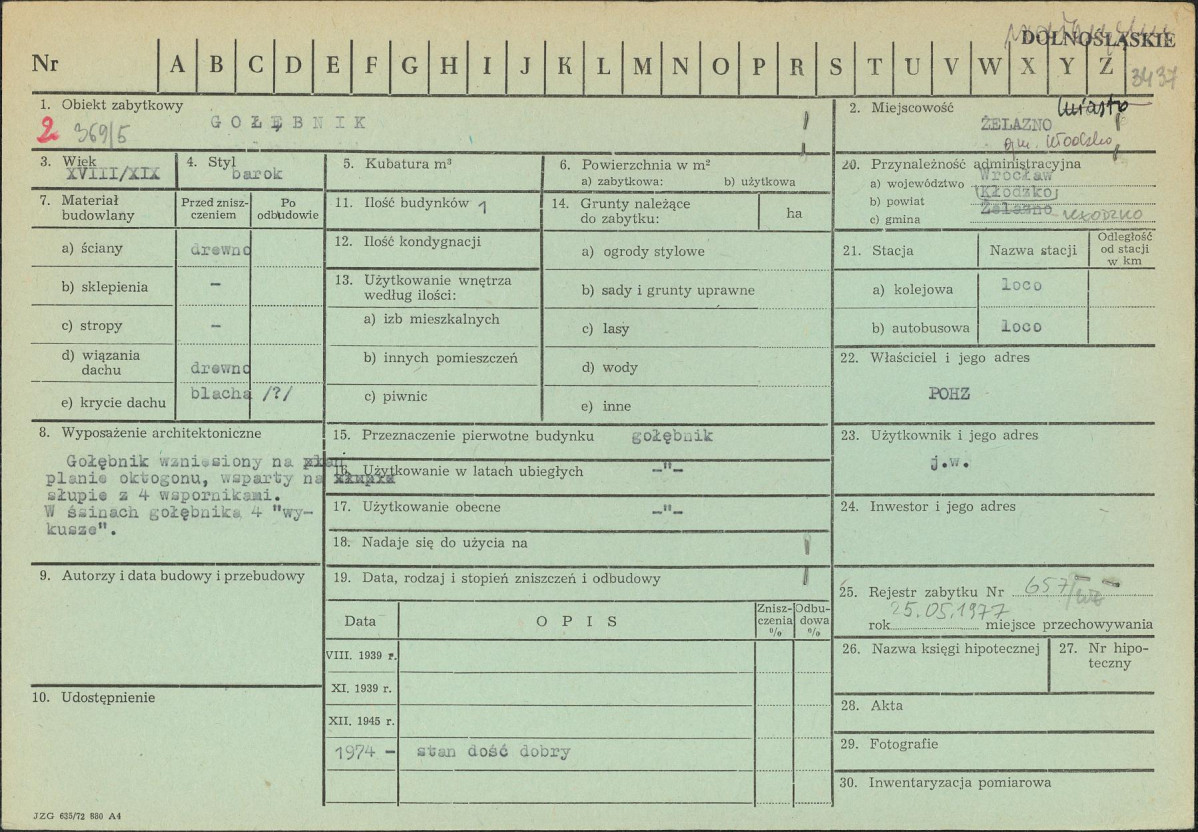 DOLNOŚLĄSKIE
Nr A B C D E F G H I J K L M N O P R S T U V W X Y Z 3437
1. Obiekt zabytkowy
2 369/5 GOŁĘBNIK
2. Miejscowość miasto
ŻELAZNO
gm. Kłodzko
3. Wiek
XVIII/XIX
4. Styl
barok
5. Kubatura m³
6. Powierzchnia w m²
a) zabytkowa: b) użytkowa
20. Przynależność administracyjna
a) województwo Wrocław
b) powiat Kłodzko
c) gmina Żelazno
7. Materiał budowlany
Przed znisz-
czeniem
Po
odbudowie
a) ściany drewno
b) sklepienia –
c) stropy –
d) wiązania
dachu drewno
e) krycie dachu blacha /?/
11. Ilość budynków 1
12. Ilość kondygnacji
13. Użytkowanie wnętrza
według ilości:
a) izb mieszkalnych
b) innych pomieszczeń
c) piwnic
14. Grunty należące
do zabytku: ha
a) ogrody stylowe
b) sady i grunty uprawne
c) lasy
d) wody
e) inne
21. Stacja Nazwa stacji
Odległość
od stacji
w km
a) kolejowa loco
b) autobusowa loco
22. Właściciel i jego adres
POHZ
8. Wyposażenie architektoniczne
Gołębnik wzniesiony na plan
planie oktogonu, wsparty na
słupie z 4 wspornikami.
W śsinach gołębnika 4 "wy-
kusze".
15. Przeznaczenie pierwotne budynku gołębnik
16. Użytkowanie w latach ubiegłych –"–
17. Użytkowanie obecne –"–
18. Nadaje się do użycia na
19. Data, rodzaj i stopień zniszczeń i odbudowy
Data OPIS
Znisz-
czenia
%
Odbu-
dowa
%
VIII. 1939 r.
XI. 1939 r.
XII. 1945 r.
1974 – stan dość dobry
23. Użytkownik i jego adres
j.w.
24. Inwestor i jego adres
25. Rejestr zabytku Nr 657/WŁ
25.05.1977
rok miejsce przechowywania
26. Nazwa księgi hipotecznej
27. Nr hipo-
teczny
28. Akta
29. Fotografie
30. Inwentaryzacja pomiarowa
9. Autorzy i data budowy i przebudowy
10. Udostępnienie
JZG 635/72 880 A4